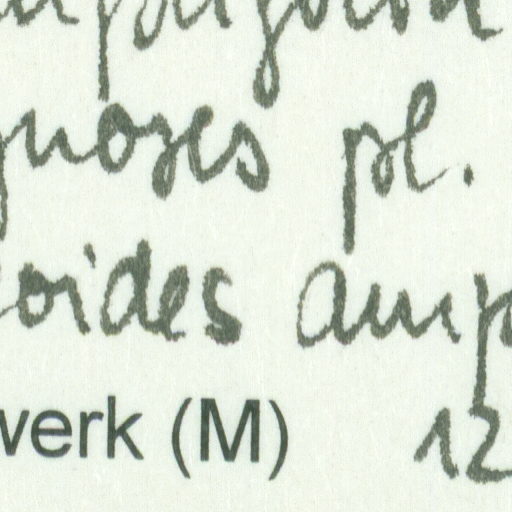 gnoses pl.
oides amp
werk (M) 12